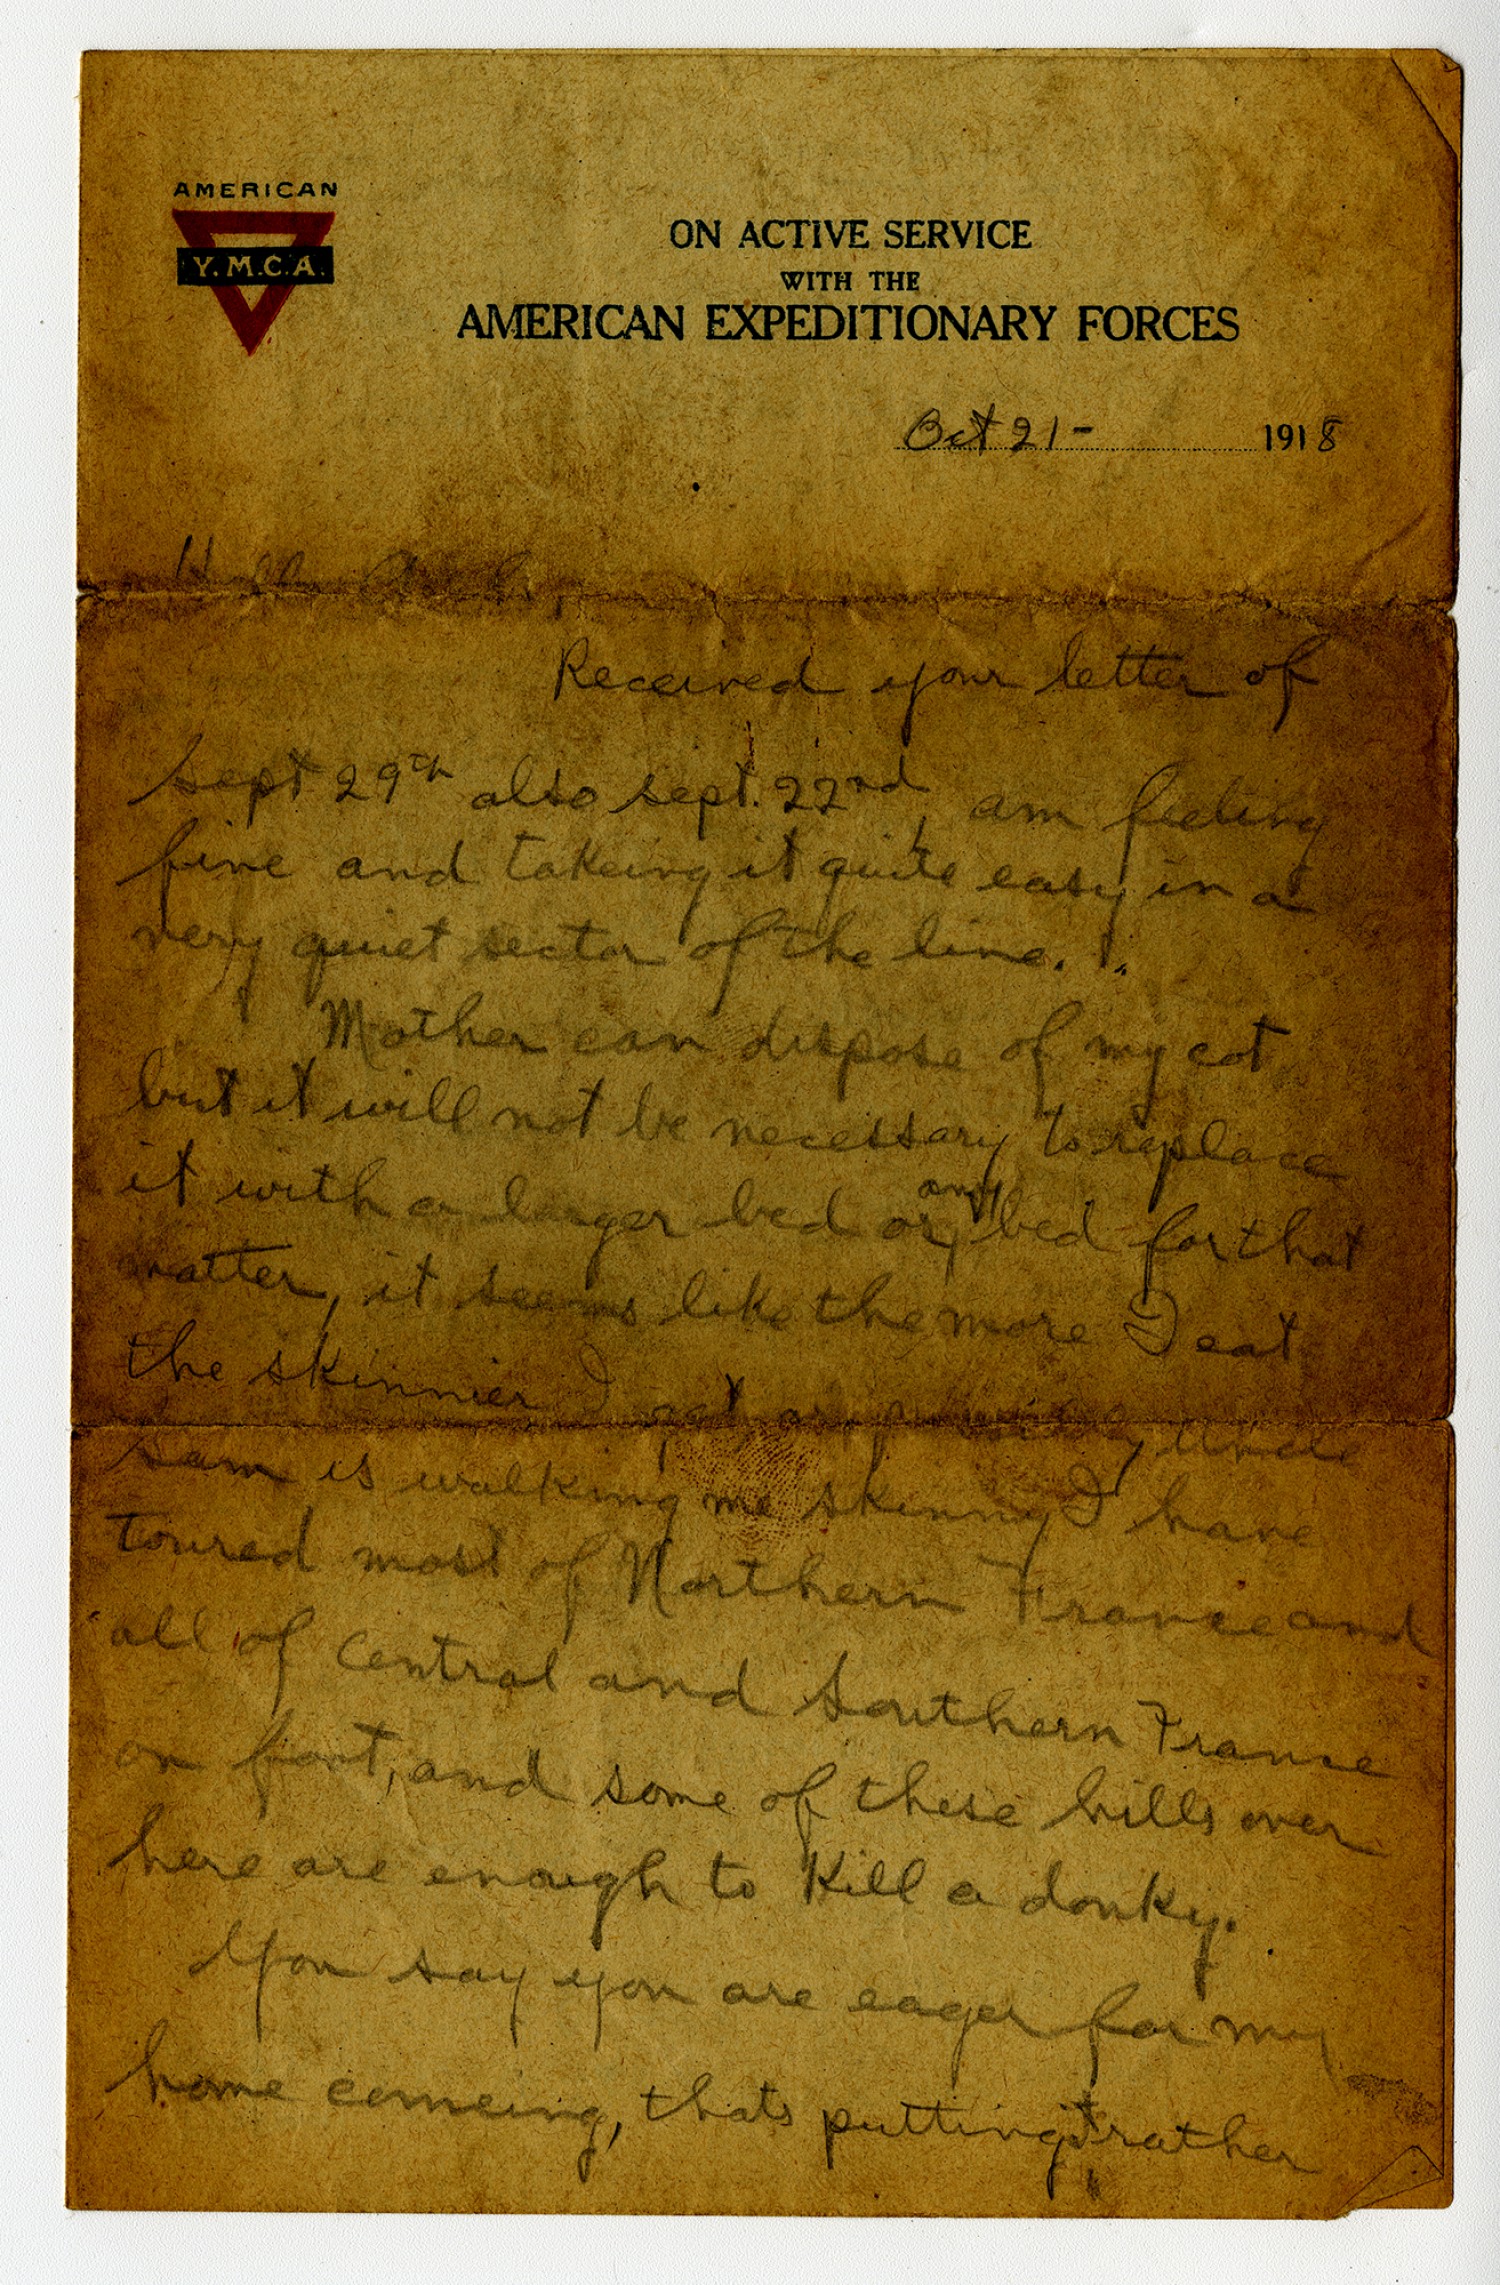 AMERICAN
Y.M.C.A.
ON ACTIVE SERVICE
WITH THE
AMERICAN EXPEDITIONARY FORCES
Oct 21- 1918
Received your letter of
Sept 29th also sept. 22nd, am feeling
fine and takeing it quite easy in a
very quiet sector of the line.
Mother can dispose of my cot
but it will not be necessary to replace
it with a larger bed or any bed for that
matter, it seems like the more I eat
the skinnier I get or Uncle
Sam is walking me skinny I have
toured most of Northern France and
all of Central and Southern France
on foot, and some of these hills over
here are enough to Kill a donky.
You say you are eager for my
home comeing, thats putting it rather